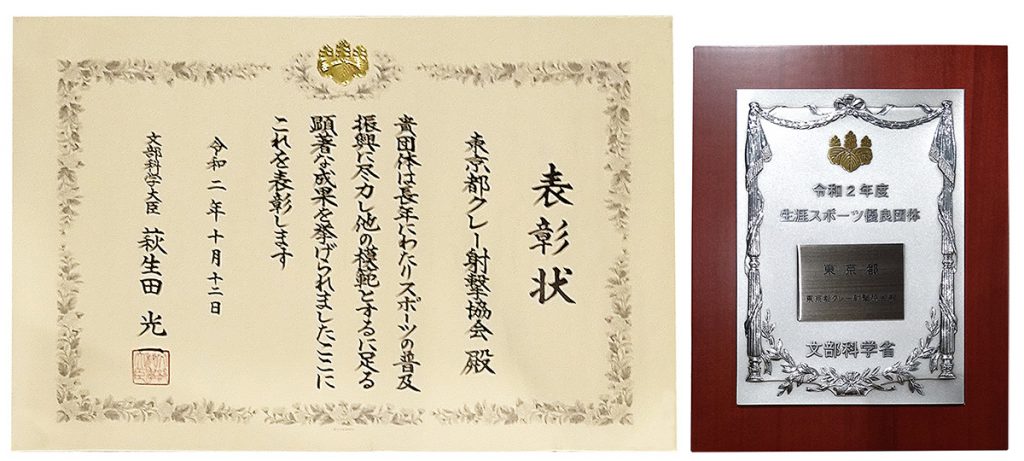 表彰状
東京都クレー射撃協会 殿
貴団体は長年にわたりスポーツの普及
振興に尽力し他の模範とするに足る
顕著な成果を挙げられましたここに
これを表彰します
令和二年十月十二日
文部科学大臣 萩生田 光一
令和2年度
生涯スポーツ優良団体
東京都
東京都クレー射撃協会
文部科学省